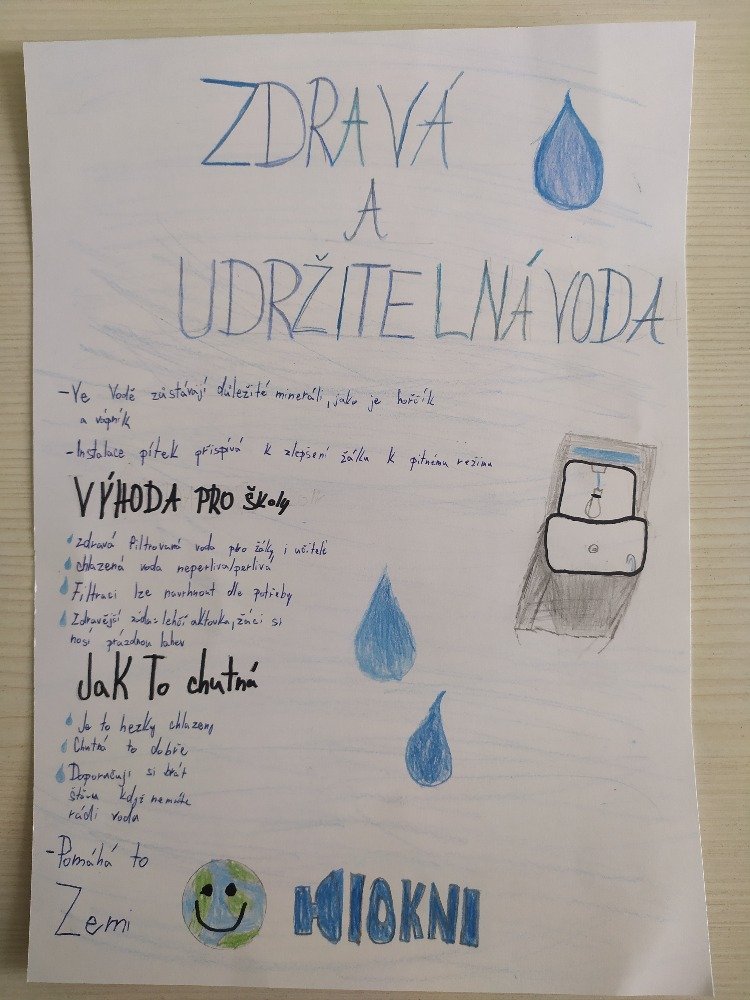 ZDRAVÁ
A
UDRŽITELNÁ VODA
-Ve Vodě zůstávají důležité mineráli, jako je hořčík
a vápník
-Instalace pítek přispívá k zlepšení žáku k pitnému režimu
VÝHODA PRO ŠKoly
zdravá filtrovaná voda pro žáky i učitelé
chlazená voda neperlivá/perlivá
Filtraci lze navrhnout dle potřeby
Zdravější záda=lehčí aktovka, žáci si
nosí prázdnou lahev
JaK To chutná
Je to hezky chlazený
Chutná to dobře
Doporučuji si brát
šťávu když nemáte
rádi vodu
-Pomáhá to
Zemi
IOKNI